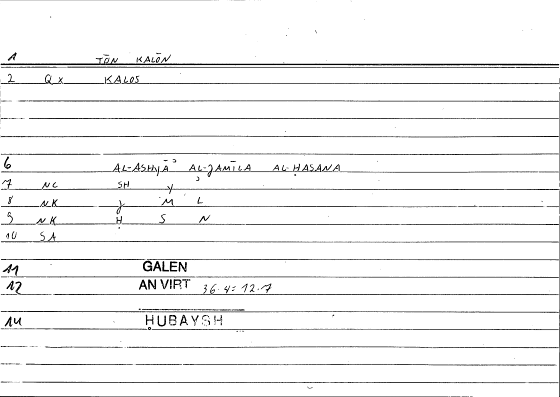 1 TŌN KALŌN
2 Qx KALOS
6 AL-ASHYĀʾ AL-JAMĪLA AL-ḤASANA
7 NC SH Y ʾ
8 NK J M L
9 NK Ḥ S N
10 SA
11 GALEN
12 AN VIRT 36.4 = 12.7
14 ḤUBAYSH